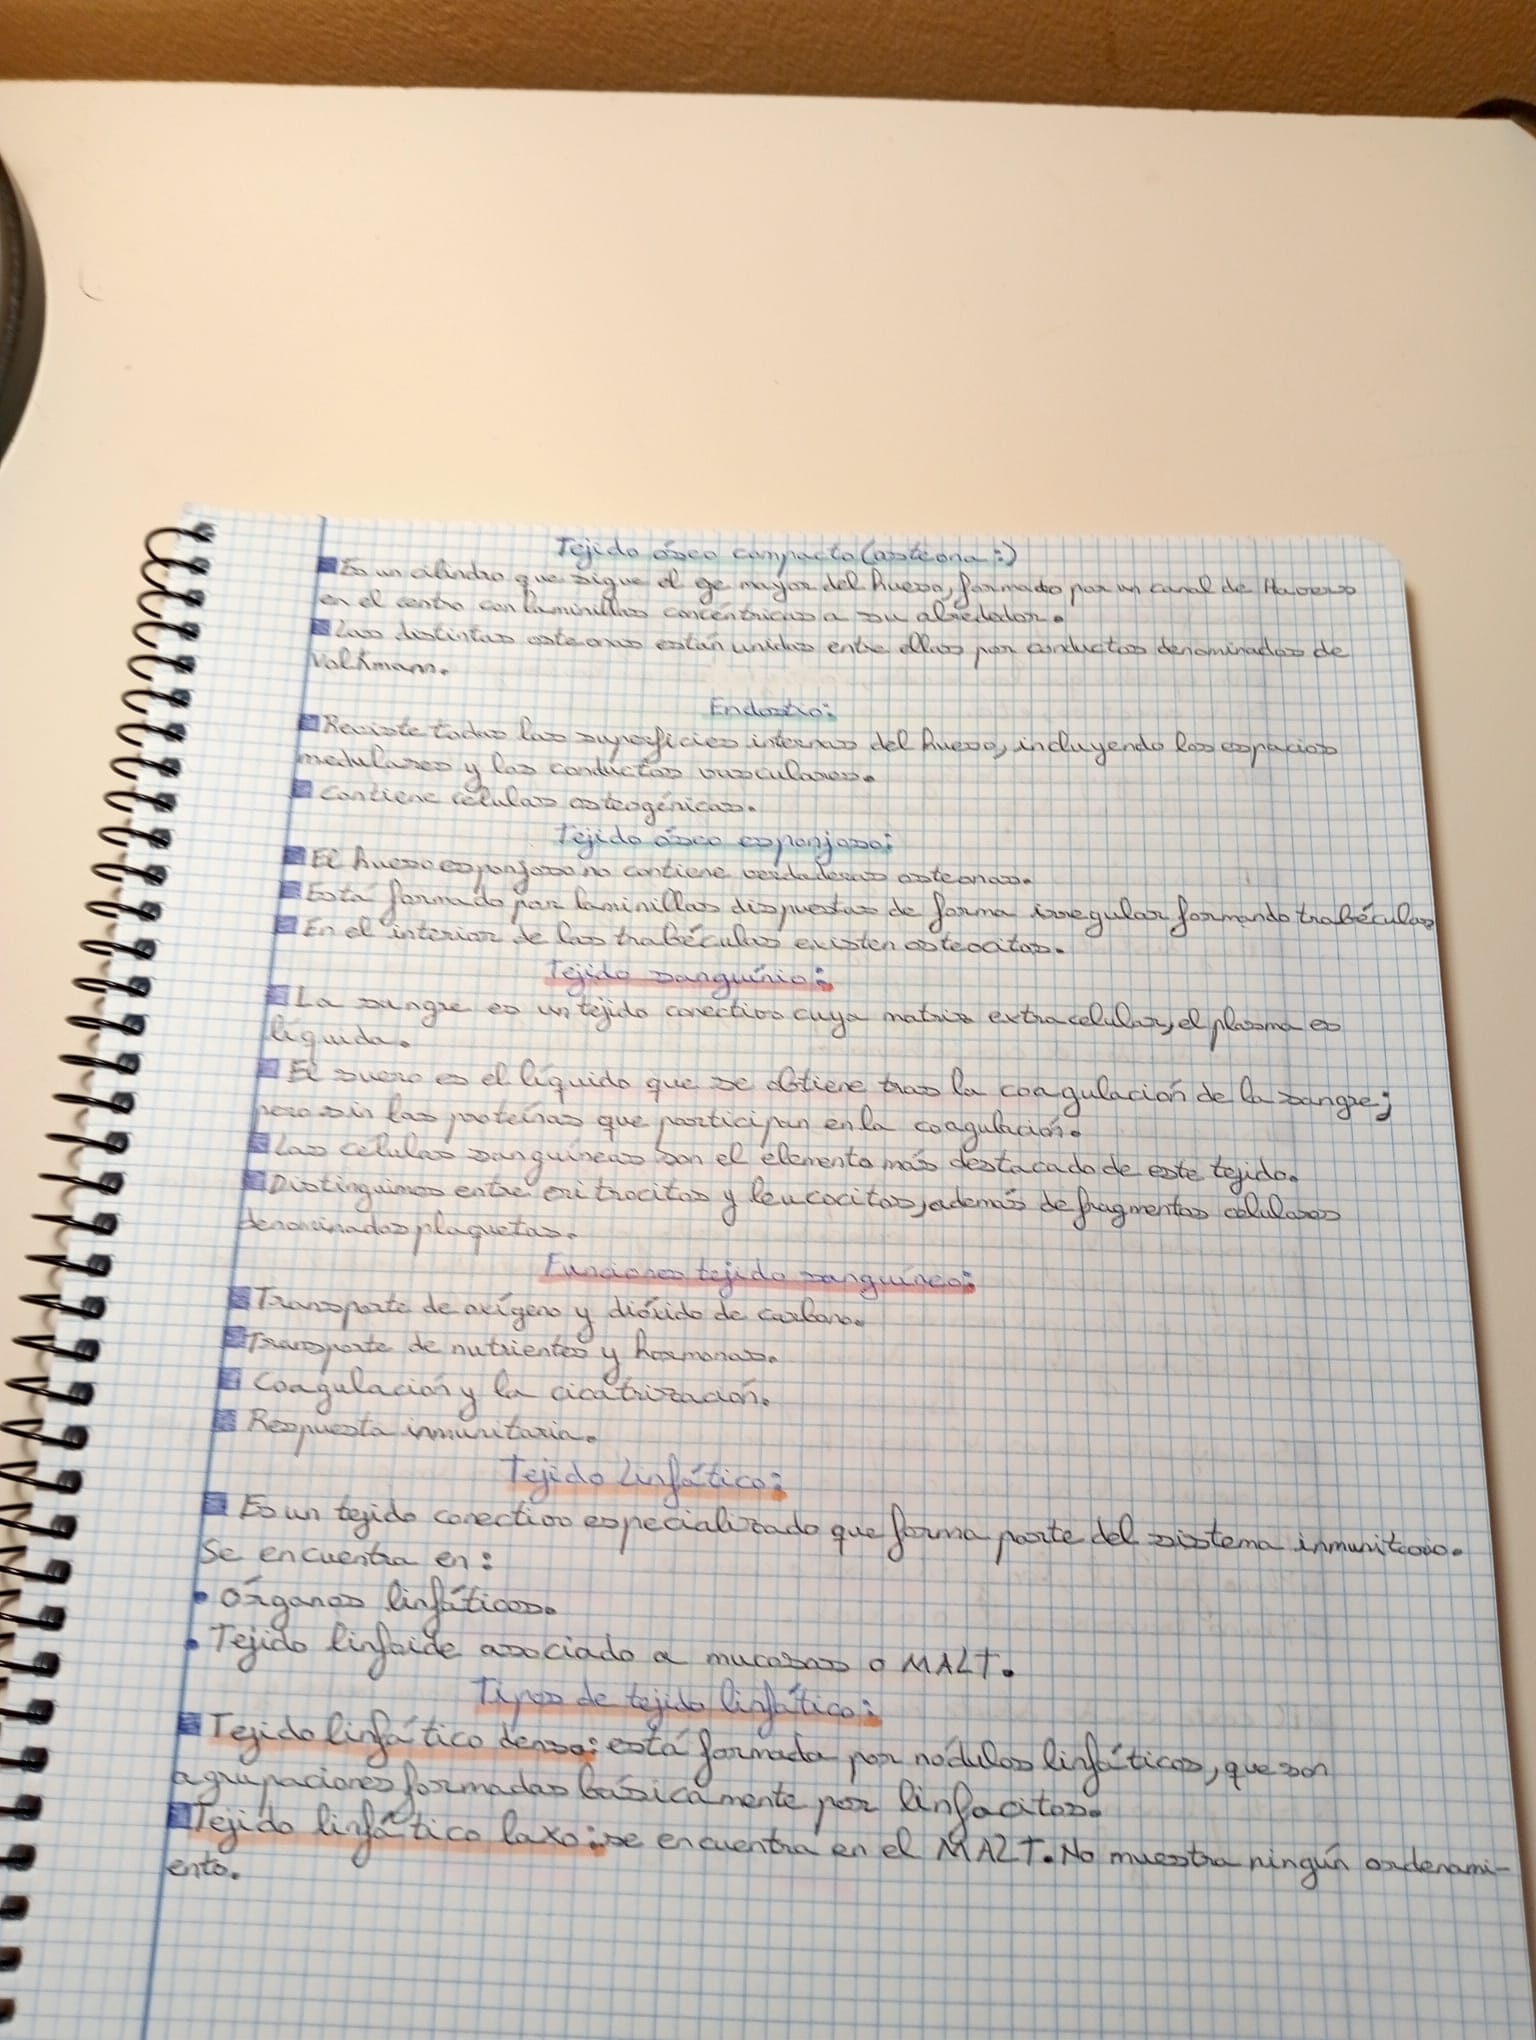 Tejido óseo compacto (osteona:)
Es un cilindro que sigue el eje mayor del hueso, formado por un canal de Havers
en el centro con laminillas concéntricas a su alrededor.
Las distintas osteonas están unidas entre ellas por conductos denominados de
Volkmann.
Endostio:
Reviste todas las superficies internas del hueso, incluyendo los espacios
medulares y los conductos vasculares.
Contiene células osteogénicas.
Tejido óseo esponjoso:
El hueso esponjoso no contiene verdaderas osteonas.
Está formado por laminillas dispuestas de forma irregular formando trabéculas
En el interior de las trabéculas existen osteocitos.
Tejido sanguínio:
La sangre es un tejido conectivo cuya matriz extracelular, el plasma es
líquida.
El suero es el líquido que se obtiene tras la coagulación de la sangre;
pero sin las proteínas que participan en la coagulación.
Las células sanguíneas son el elemento más destacado de este tejido.
Distinguimos entre eritrocitos y leucocitos, además de fragmentos celulares
denominados plaquetas.
Funciones tejido sanguíneo:
Transporte de oxígeno y dióxido de carbono.
Transporte de nutrientes y hormonas.
Coagulación y la cicatrización.
Respuesta inmunitaria.
Tejido Linfático:
Es un tejido conectivo especializado que forma parte del sistema inmunitario.
Se encuentra en:
• Órganos linfáticos.
• Tejido linfoide asociado a mucosas o MALT.
Tipos de tejido linfático:
Tejido linfático denso: está formada por nódulos linfáticos, que son
agrupaciones formadas básicamente por linfocitos.
Tejido linfático laxo: se encuentra en el MALT. No muestra ningún ordenami-
ento.